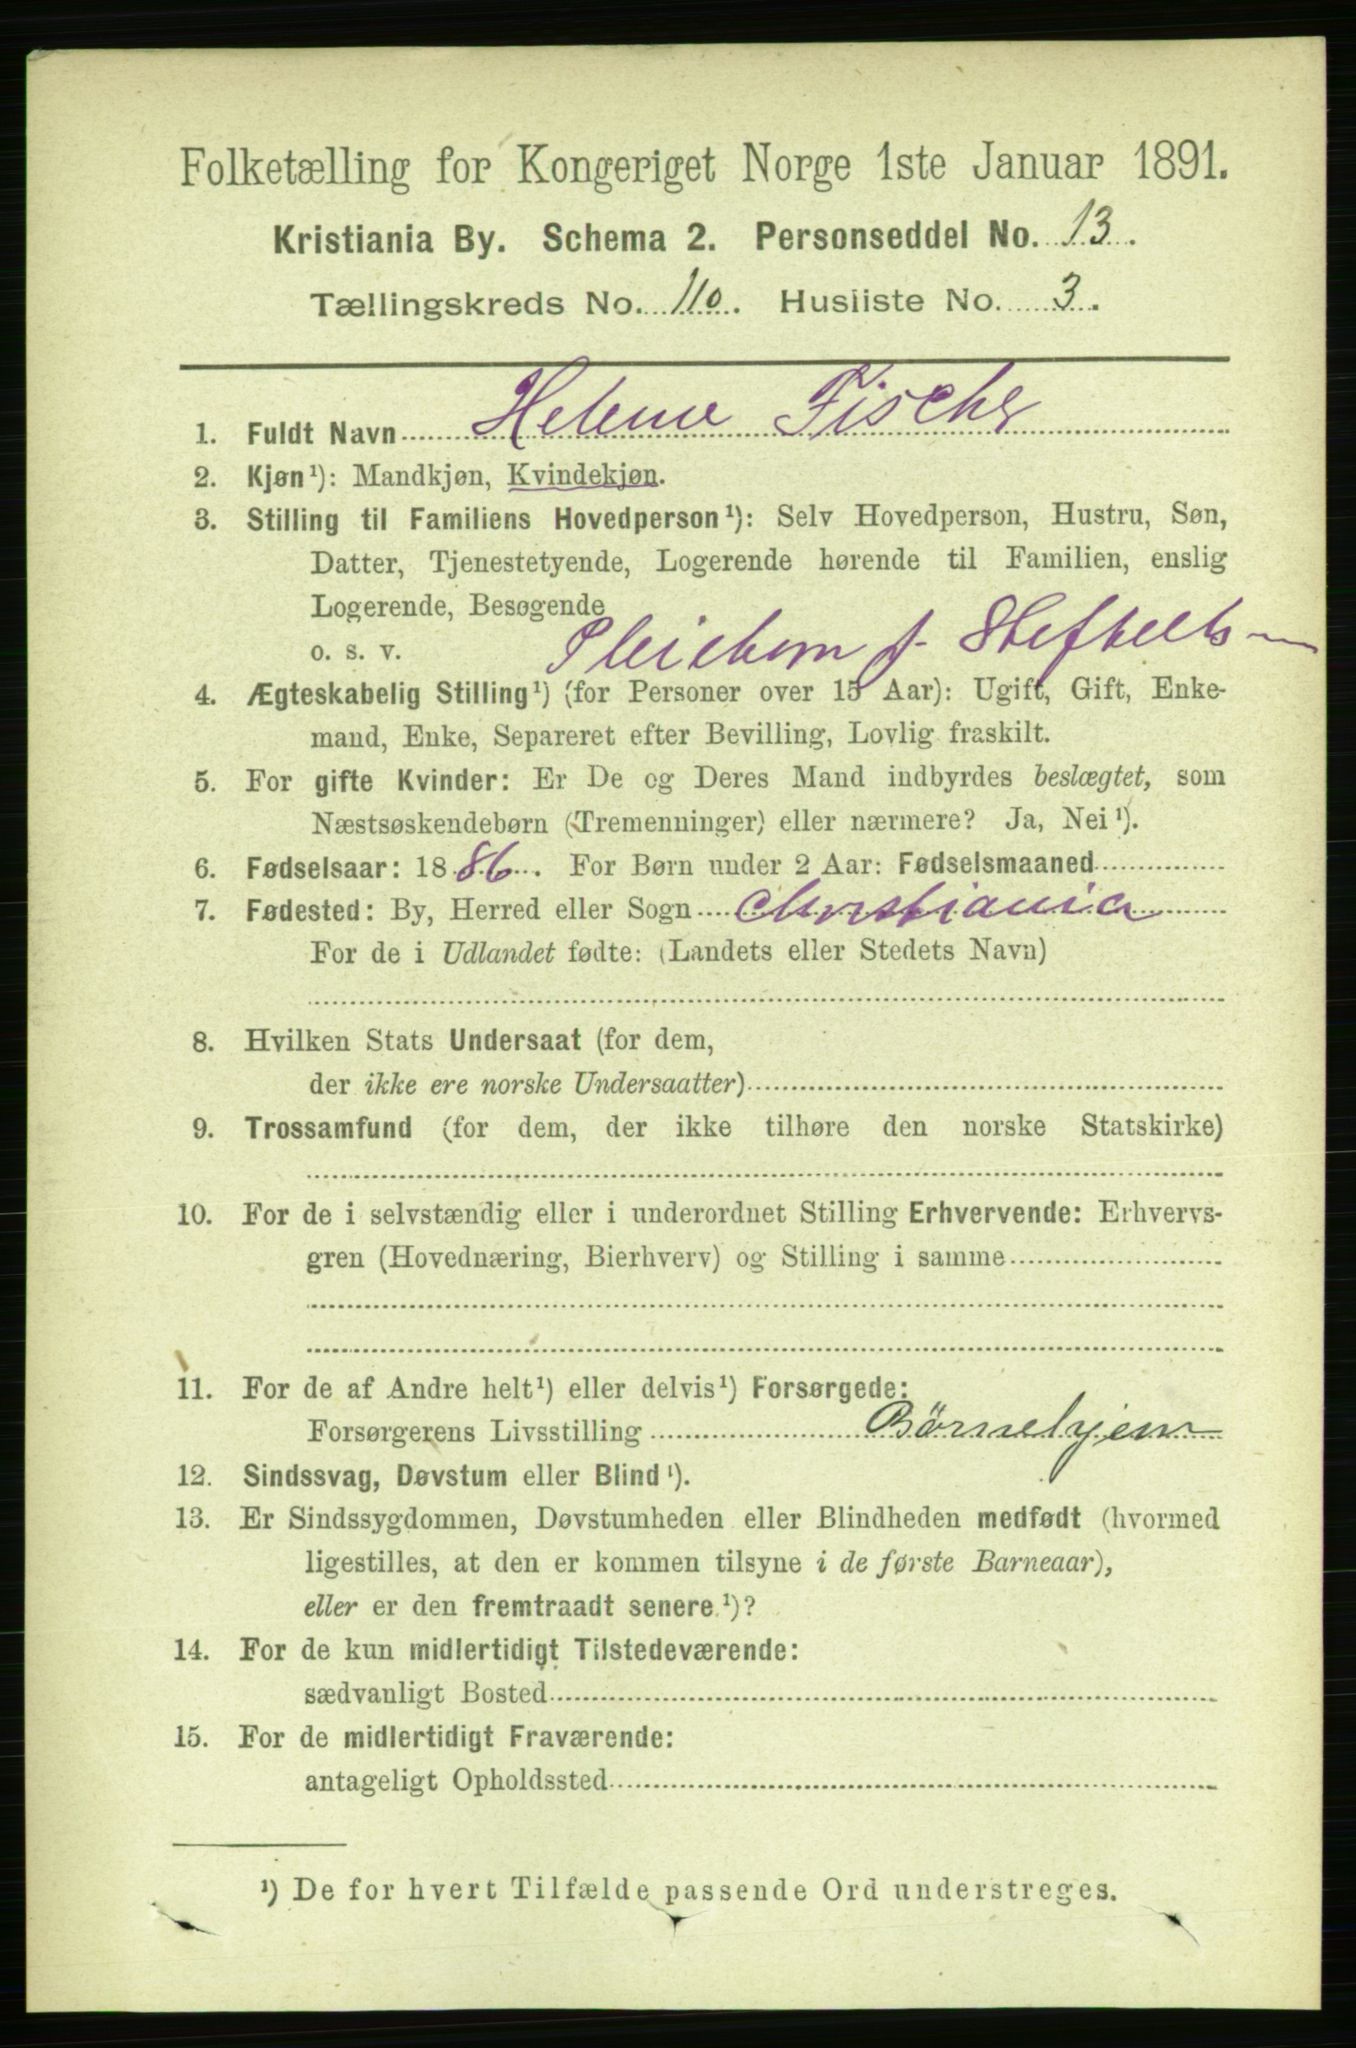 Folketælling for Kongeriget Norge 1ste Januar 1891.
Kristiania By. Schema 2. Personseddel No. 13.
Tællingskreds No. 110. Husliste No. 3.
1. Fuldt Navn Helene Fischer
2. Kjøn¹): Mandkjøn, Kvindekjøn.
3. Stilling til Familiens Hovedperson¹): Selv Hovedperson, Hustru, Søn,
Datter, Tjenestetyende, Logerende hørende til Familien, enslig
Logerende, Besøgende
o. s. v. Pleiebarn f.
4. Ægteskabelig Stilling¹) (for Personer over 15 Aar): Ugift, Gift, Enke-
mand, Enke, Separeret efter Bevilling, Lovlig fraskilt.
5. For gifte Kvinder: Er De og Deres Mand indbyrdes beslægtet, som
Næstsøskendebørn (Tremenninger) eller nærmere? Ja, Nei¹).
6. Fødselsaar: 1886. For Børn under 2 Aar: Fødselsmaaned
7. Fødested: By, Herred eller Sogn Christiania
For de i Udlandet fødte: (Landets eller Stedets Navn)
8. Hvilken Stats Undersaat (for dem,
der ikke ere norske Undersaatter)
9. Trossamfund (for dem, der ikke tilhøre den norske Statskirke)
10. For de i selvstændig eller i underordnet Stilling Erhvervende: Erhvervs-
gren (Hovednæring, Bierhverv) og Stilling i samme
11. For de af Andre helt¹) eller delvis¹) Forsørgede:
Forsørgerens Livsstilling Børnehjem
12. Sindssvag, Døvstum eller Blind¹).
13. Er Sindssygdommen, Døvstumheden eller Blindheden medfødt (hvormed
ligestilles, at den er kommen tilsyne i de første Barneaar),
eller er den fremtraadt senere¹)?
14. For de kun midlertidigt Tilstedeværende:
sædvanligt Bosted
15. For de midlertidigt Fraværende:
antageligt Opholdssted
¹) De for hvert Tilfælde passende Ord understreges.